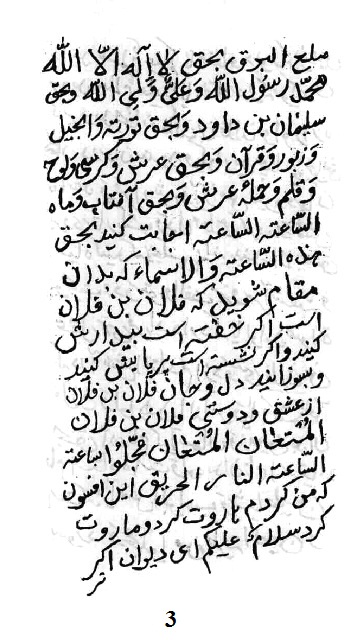 ملع البرق بحق لا اله الا الله
محمد رسول الله وعلی ولی الله وبحق
سلیمان بن داود وبحق توریة وانجیل
وزبور وقرآن وبحق عرش وکرسی ولوح
وقلم وحملهٔ عرش وبحق آفتاب وماه
الساعته الساعته اجابت کنید بحق
هذه الساعته والاسماء که بدان
مقام شوید که فلان بن فلان
است اکر خفته است بیدارش
کنید واکر نشسته است برپا کنید
وبسوزانید دل وجان فلان بن فلان
از عشق ودوستی فلان بن فلان
المتعان المتعان عجلوا ساعته
الساعته النار الحریق این افسون
که من کردم هاروت کرد وماروت
کرد سلام علیکم ای دیوان اکر
3